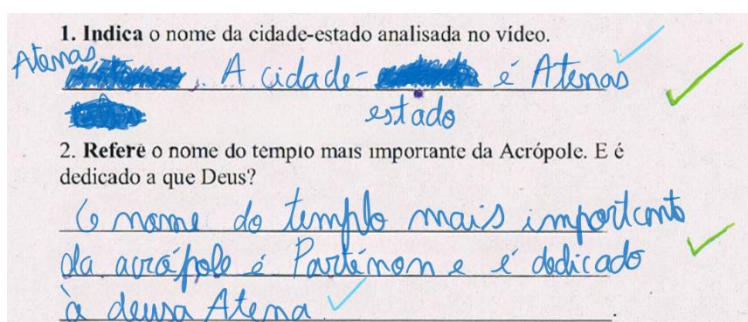 1. Indica o nome da cidade-estado analisada no vídeo.
Atenas
. A cidade- é Atenas
estado
2. Refere o nome do templo mais importante da Acrópole. E é
dedicado a que Deus?
O nome do templo mais importante
da acrópole é Parténon e é dedicado
à deusa Atena.